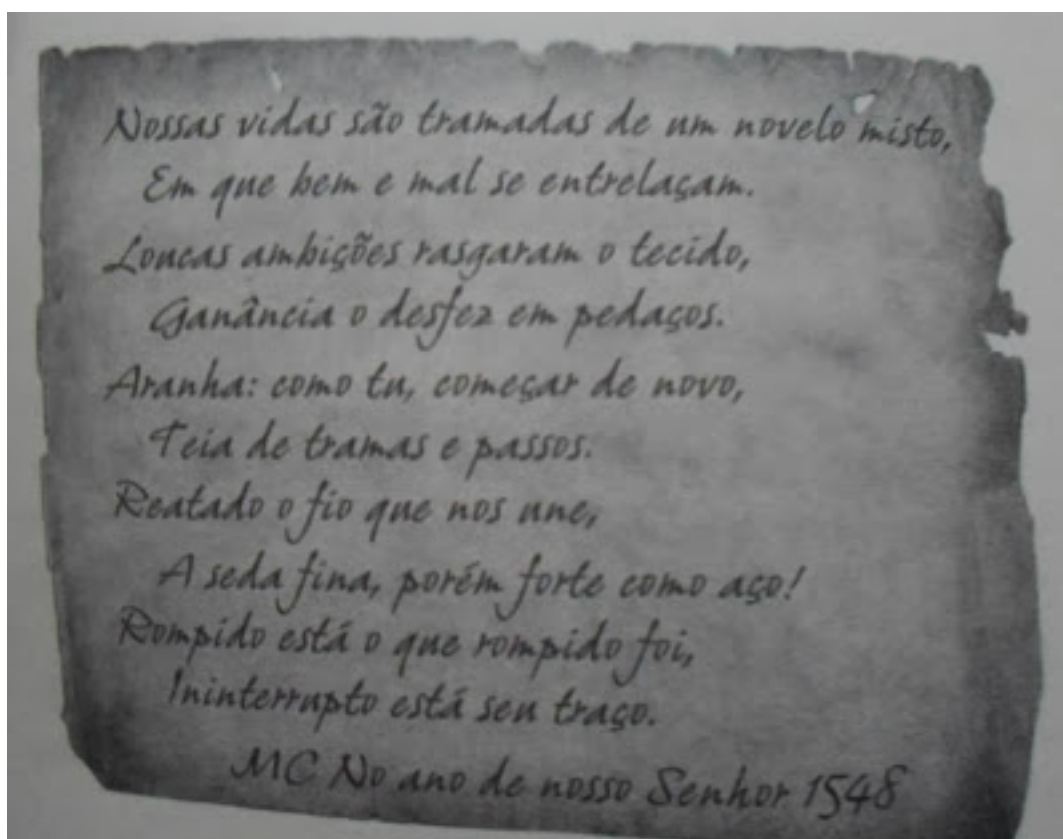 Nossas vidas são tramadas de um novelo misto,
Em que bem e mal se entrelaçam.
Loucas ambições rasgaram o tecido,
Ganância o desfez em pedaços.
Aranha: como tu, começar de novo,
Teia de tramas e passos.
Reatado o fio que nos une,
A seda fina, porém forte como aço!
Rompido está o que rompido foi,
Ininterrupto está seu traço.
MC No ano de nosso Senhor 1548